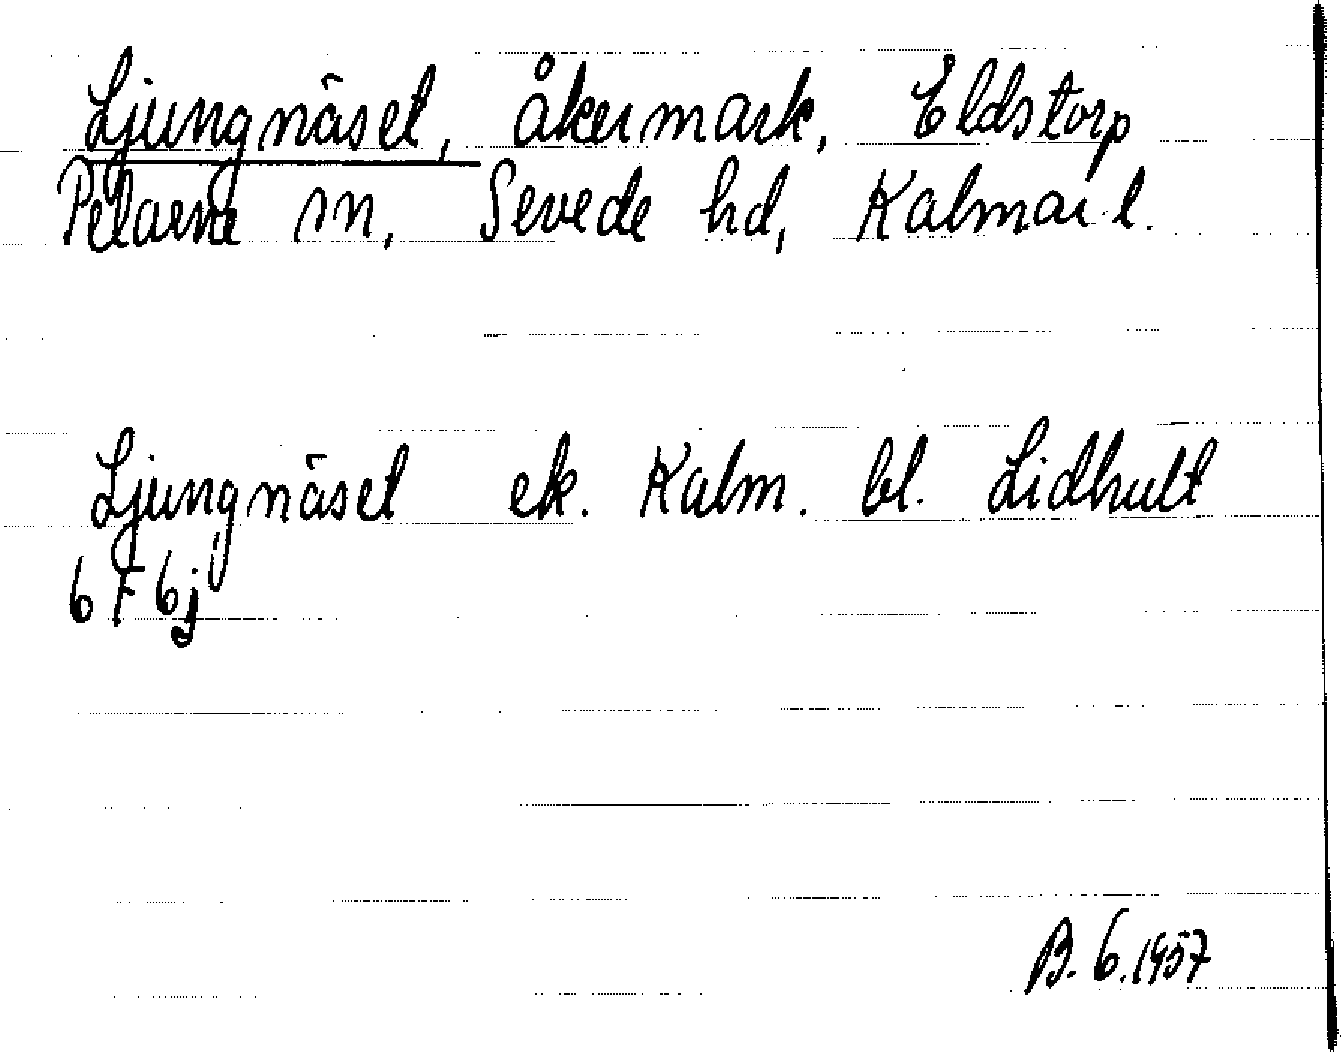 Ljungnäset, åkermark, Eldstorp
Pelarne sn, Sevede hd, Kalmar l.
Ljungnäset ek. Kalm. bl. Lidhult
6 F 6j
B. G. 1957